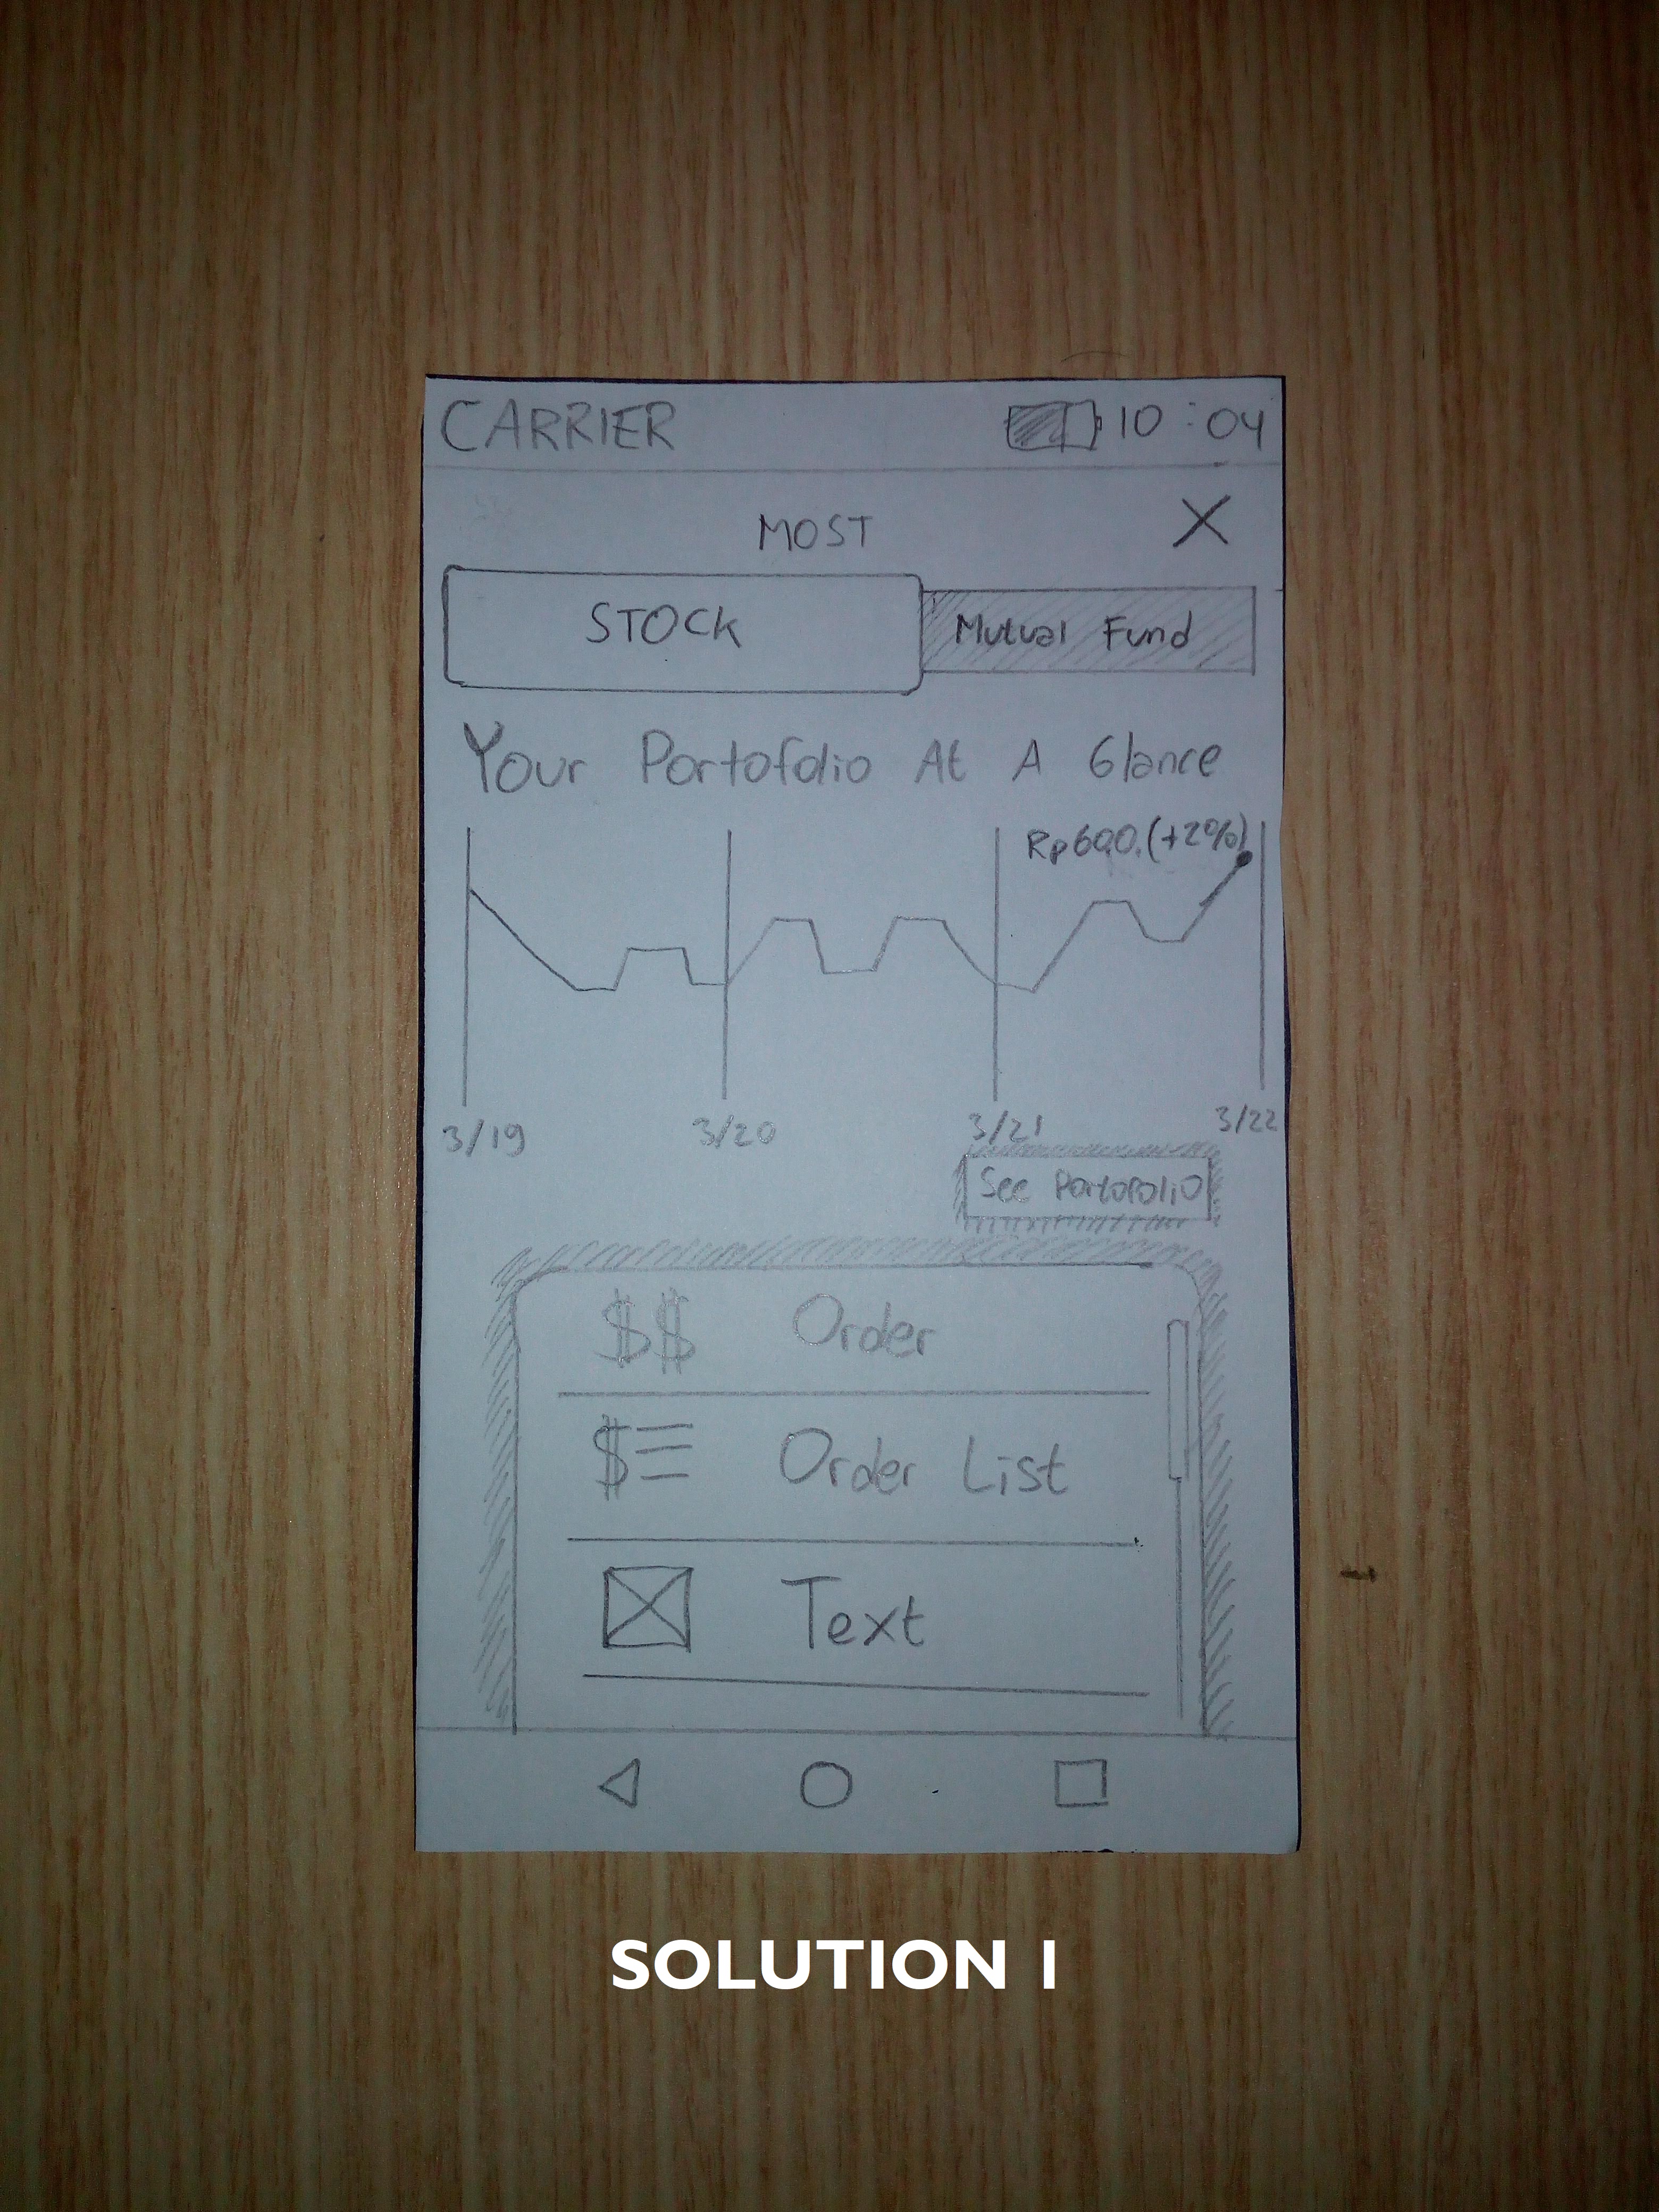 CARRIER 10:04
MOST X
STOCK Mutual Fund
Your Portofolio At A Glance
Rp600.(+2%)
3/19 3/20 3/21 3/22
See Portofolio
$$ Order
$ Order List
Text
SOLUTION 1